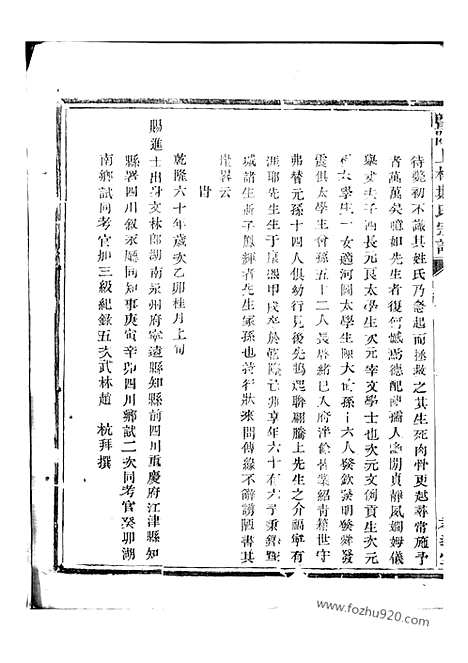 待斃初不識其姓氏乃急起而拯救之其生死肉骨更超尋常施予
者萬萬矣噫如先生者復何憾焉德配陳孺人幽閒貞靜夙嫻姆儀
舉丈夫子四長元良太學生次元宰文學士也次元文例貢生次元
太學生一女適河圖太學生陳大 孫十六人發欽發明發 發
震俱太學生曾孫五十二人 緒已入府泮餘 業紹青箱世守
弗替元孫十四人俱幼行見後先鵲起聯翩騰上先生之介福寧有
涯耶先生生于康熙甲戌卒於乾隆 享年六十有六予秉鐸
城諸生 子鳳輝者先生家孫也將行狀來問傳緣不辭譾陋書其
崖畧云
旹
乾隆六十年歲次乙卯桂月上旬
賜進士出身文林郎湖南永州府寧遠縣知縣前四川重慶府江津縣知
縣署四川敘永廳同知事庚寅辛卯四川鄉試二次同考官癸卯湖
南鄉試同考官加三級紀錄五次武林趙 杭拜撰
www.fozhu920.com